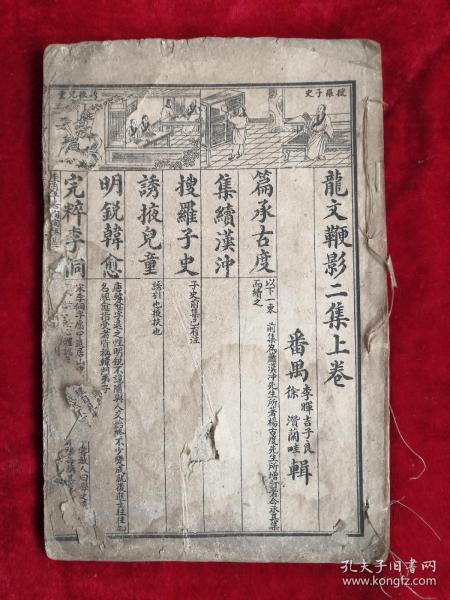 史子羅搜
童兒掖誘
龍文鞭影二集上卷
番禺
李暉吉子良
徐 灒蘭畦
輯
篇承古度
集續漢沖
以下一東
前集為蕭漢沖先生所著楊古度先生所增訂者今承其集
而續之
搜羅子史
子史前集已有注
誘掖兒童
誘引也掖扶也
明銳韓愈
唐韓愈字退之性明銳不詭隨與人交始終不少變成就後進士往往知
名經愈指授者皆稱韓門弟子
完粹李侗
孔夫子旧书网
www.kongfz.com